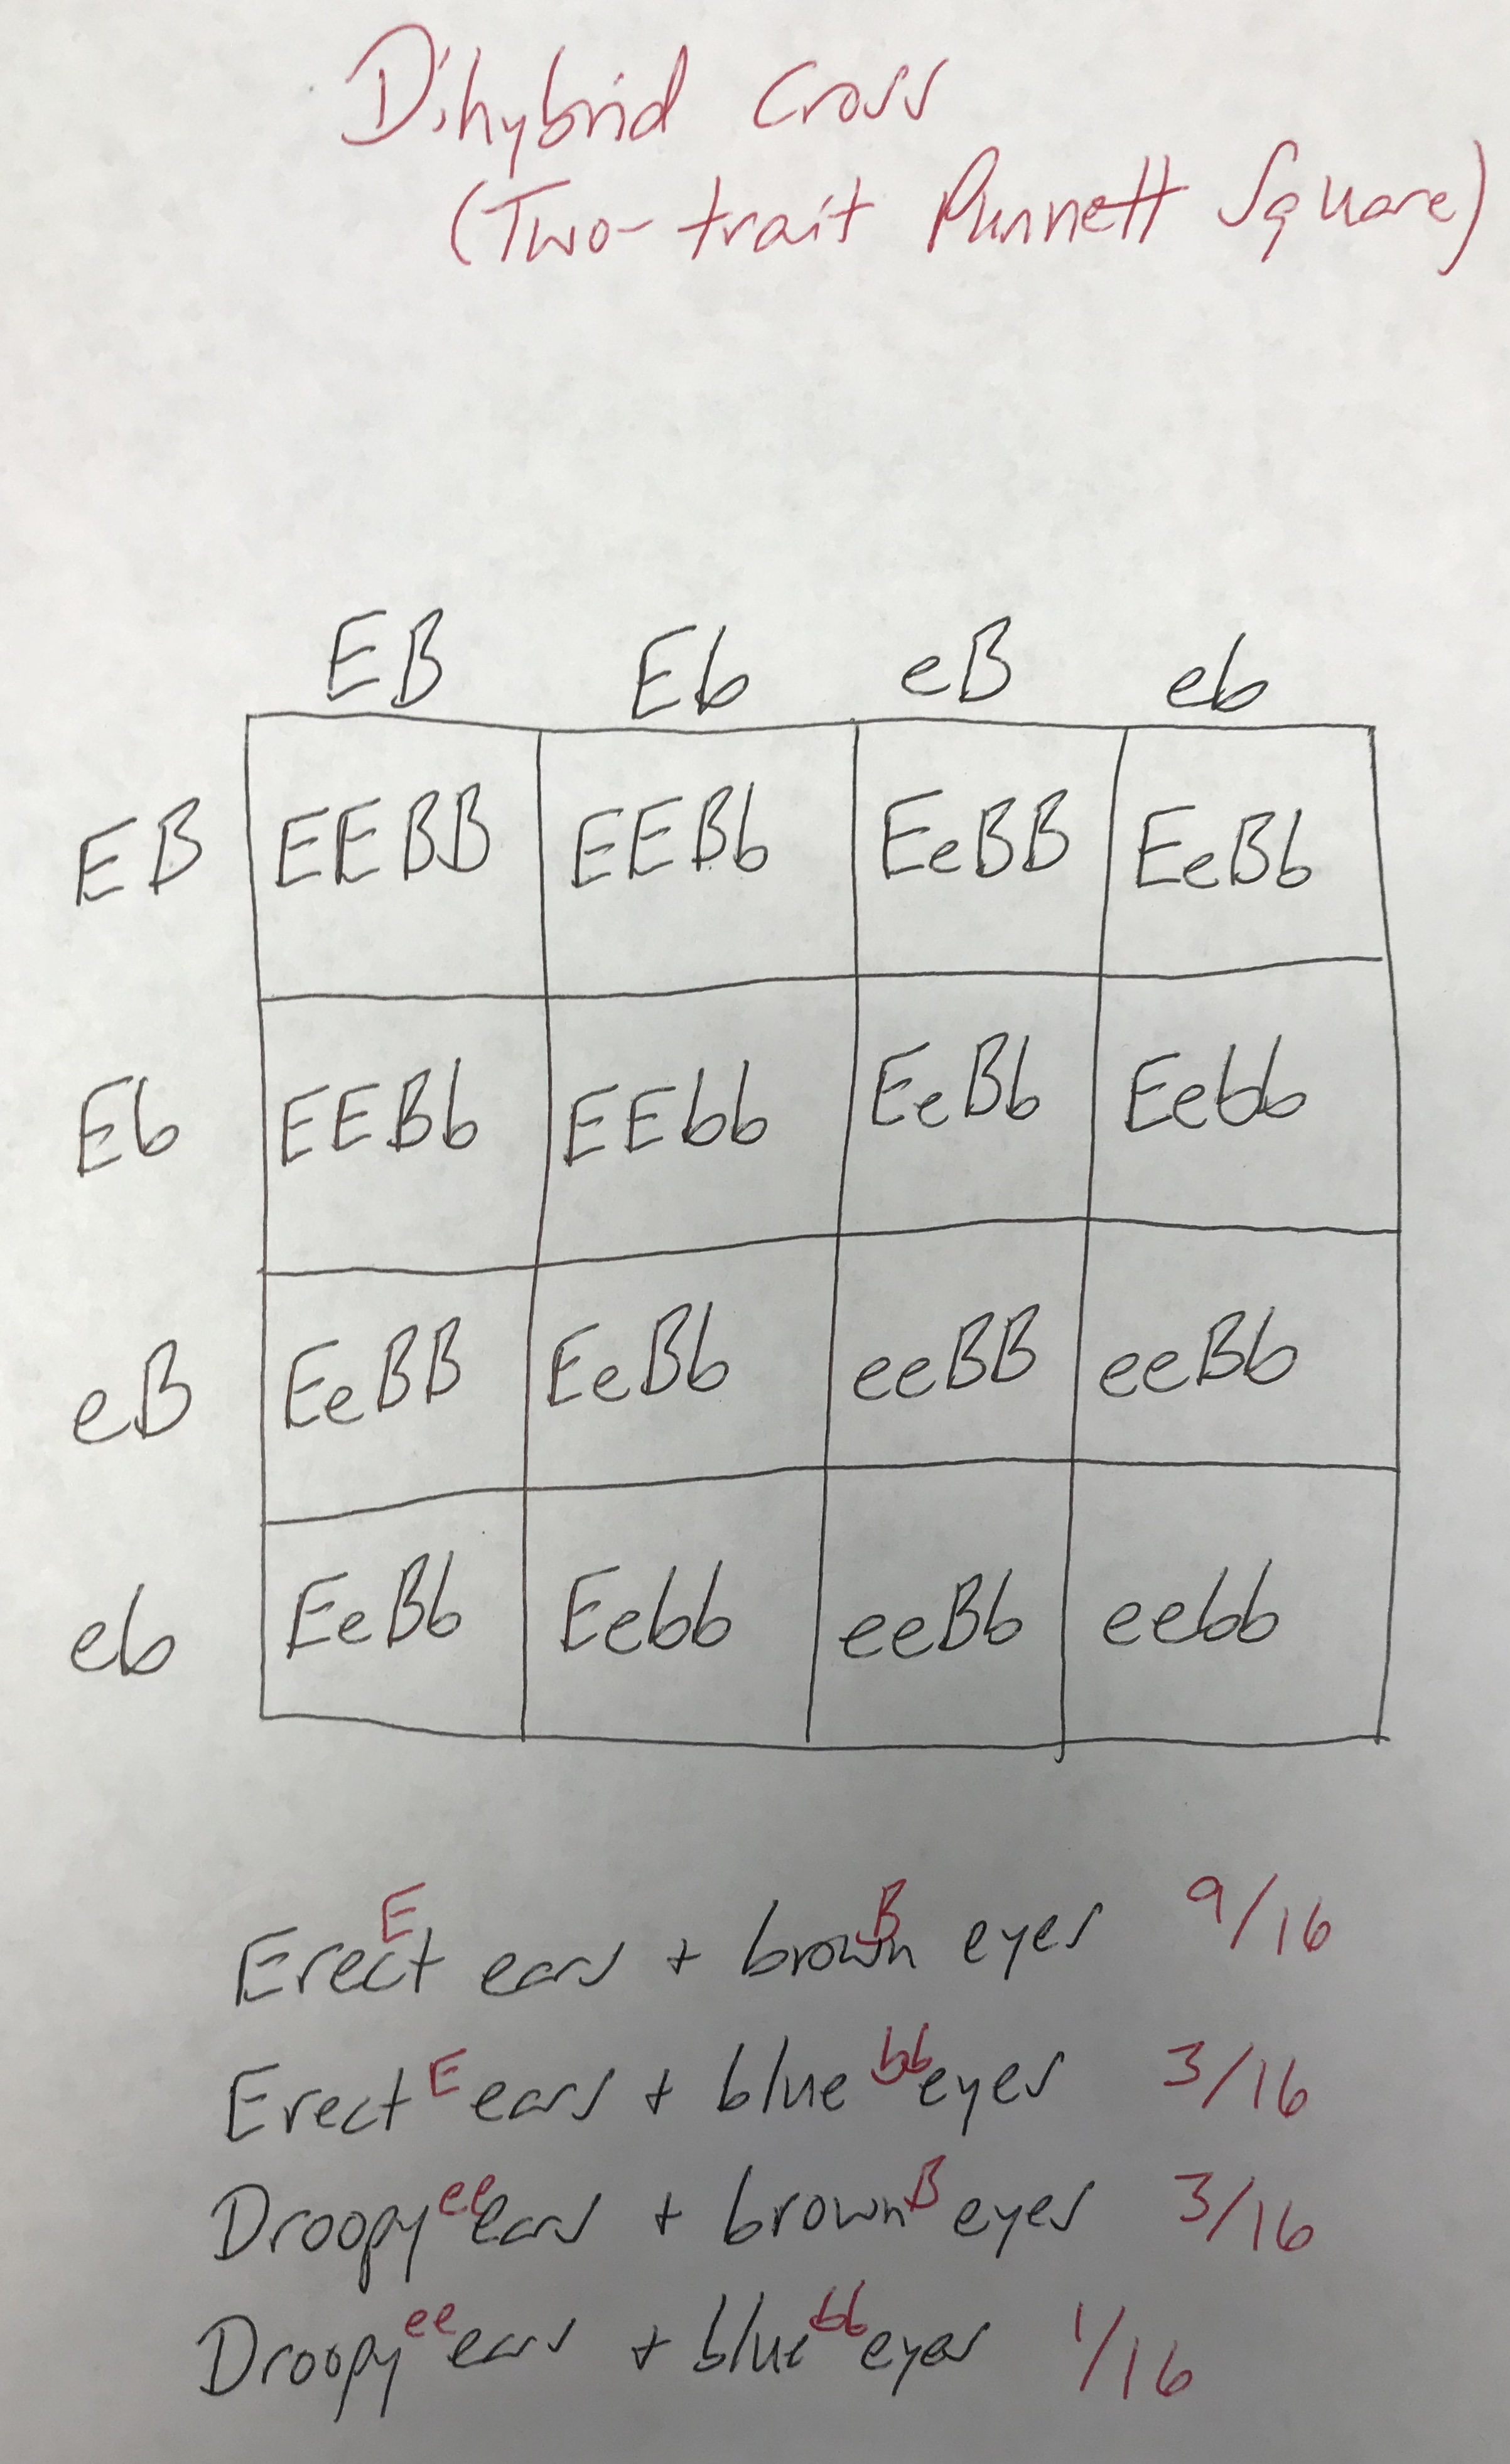 Dihybrid Cross
(Two-trait Punnett Square)
EB Eb eB eb
EB EEBB EEBb EeBB EeBb
Eb EEBb EEbb EeBb Eebb
eB EeBB EeBb eeBB eeBb
eb EeBb Eebb eeBb eebb
E B
Erect ears + brown eyes 9/16
E bb
Erect ears + blue eyes 3/16
ee B
Droopy ears + brown eyes 3/16
ee bb
Droopy ears + blue eyes 1/16